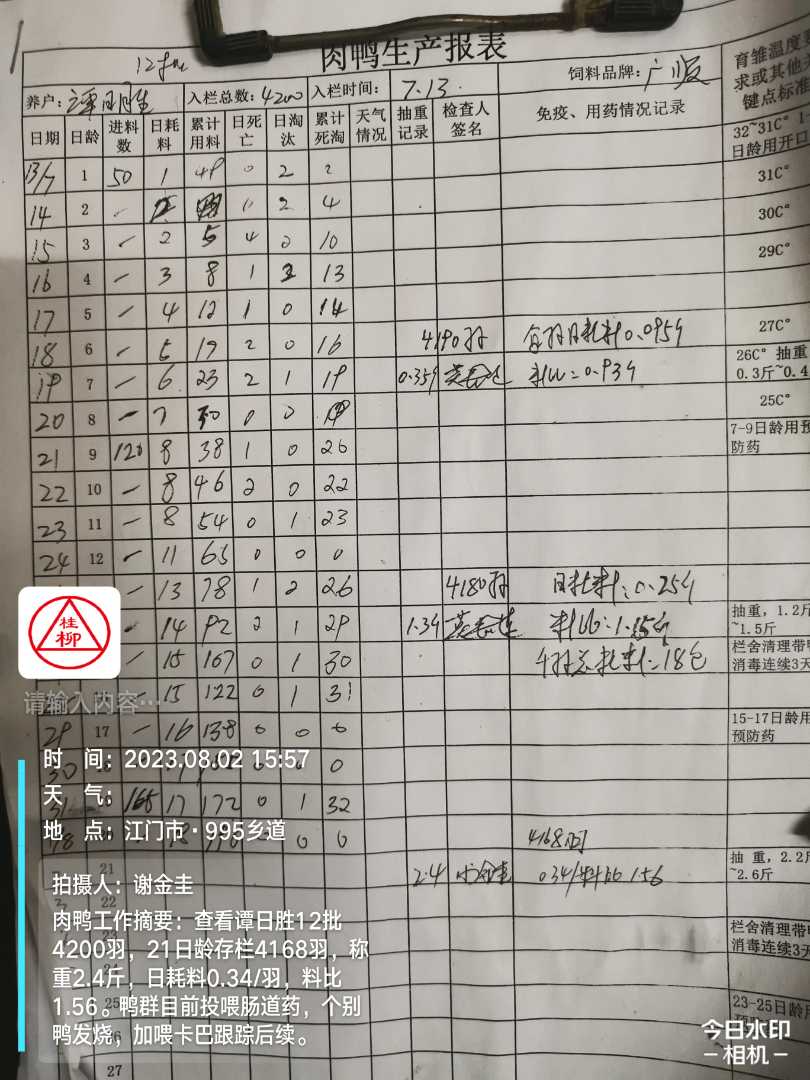 12批
肉鸭生产报表
养户: 谭日胜 入栏总数: 4200 入栏时间: 7.13. 饲料品牌: 广顺
育雏温度要
求或其他关
键点标准
日期 日龄 进料数 日耗料 累计用料 日死亡 日淘汰 累计死淘 天气情况 抽重记录 检查人签名 免疫、用药情况记录
32~31C° 1-
日龄用开口
13/7 1 50 1 0 2 2 31C°
14 2 0 2 4 30C°
15 3 2 5 4 10 29C°
16 4 3 8 1 13
17 5 4 12 1 0 14 27C°
18 6 5 2 0 16 4190羽 含羽日耗料0.095斤
19 7 6 23 2 1 19 0.35斤 料比=0.93斤 26C° 抽重
0.3斤~0.4
20 8 7 30 0 0 25C°
21 9 120 8 38 1 0 26 7-9日龄用预
防药
22 10 8 46 2 0 22
23 11 8 54 0 1 23
24 12 11 65 0 0 0
13 78 1 2 26 4180羽 日耗料:0.25斤
14 92 2 1 29 1.3斤 料比: 抽重,1.2斤
~1.5斤
15 107 0 1 30 料=18包 栏舍清理带
消毒连续3天
15 122 0 1 31
29 17 16 138 0 0 0 15-17日龄用
预防药
30 0 0
31 165 17 172 0 1 32
18 0 0 4168羽
21 2.4 0.34/料比1.56 抽 重,2.2斤
~2.6斤
栏舍清理带
消毒连续3天
25 23-25日龄用
26
27
桂柳
请输入内容…
时 间: 2023.08.02 15:57
天 气:
地 点: 江门市·995乡道
拍摄人: 谢金圭
肉鸭工作摘要: 查看谭日胜12批
4200羽,21日龄存栏4168羽,称
重2.4斤,日耗料0.34/羽,料比
1.56。鸭群目前投喂肠道药,个别
鸭发烧,加喂卡巴跟踪后续。
今日水印
-相机-